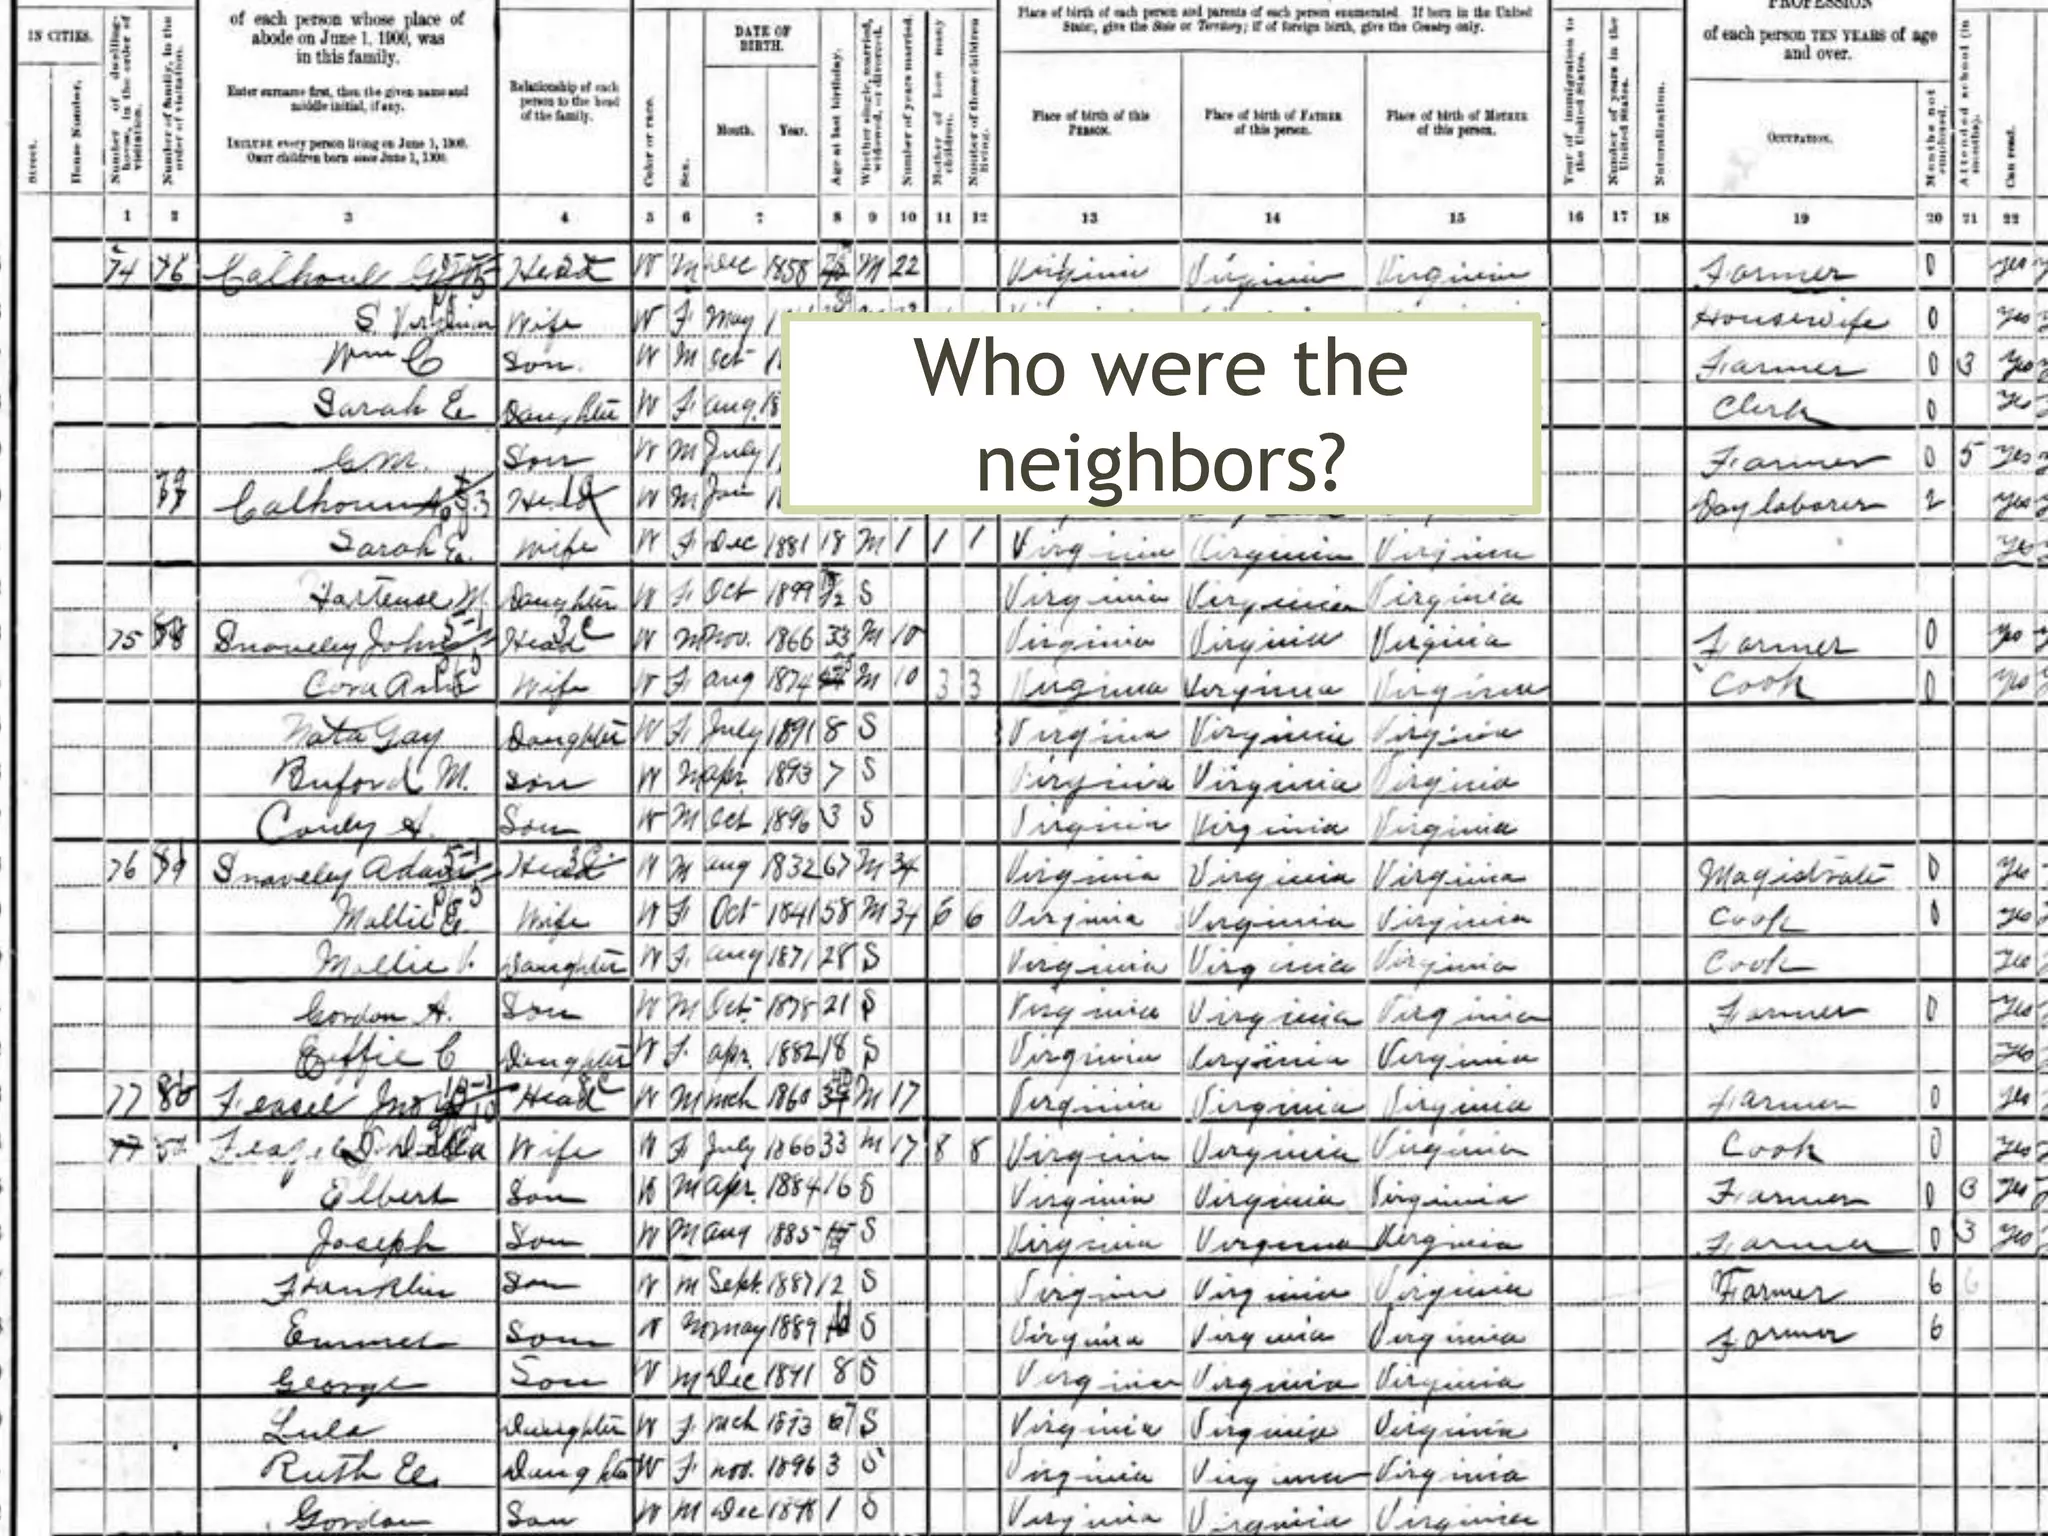 PROFESSION
IN CITIES.
of each person whose place of
abode on June 1, 1900, was
in this family.
Enter surname first, then the given name and
middle initial, if any.
INCLUDE every person living on June 1, 1900.
OMIT children born since June 1, 1900.
Street.
House Number.
Number of dwelling house, in the order of visitation.
Number of family, in the order of visitation.
Relationship of each
person to the head
of the family.
Color or race.
Sex.
DATE OF
BIRTH.
Month.
Year.
Age at last birthday.
Whether single, married, widowed, or divorced.
Number of years married.
Mother of how many children.
Number of these children living.
Place of birth of each person and parents of each person enumerated. If born in the United
States, give the State or Territory; if of foreign birth, give the Country only.
Place of birth of this
PERSON.
Place of birth of FATHER
of this person.
Place of birth of MOTHER
of this person.
Year of immigration to the United States.
Number of years in the United States.
Naturalization.
of each person TEN YEARS of age
and over.
OCCUPATION.
Months not employed.
Attended school (in months).
Can read.
1 2 3 4 5 6 7 8 9 10 11 12 13 14 15 16 17 18 19 20 21 22
74 76 Head W M Dec 1858 M 22 Virginia Virginia Virginia Farmer 0 yes
S. Virginia Wife W F May Housewife 0 yes
Wm C Son W M Oct Farmer 0 3 yes
Sarah E. Daughter W F Aug. Clerk 0 yes
G M. Son W M July Farmer 0 5 yes
Calhoun Head W M Jan Day laborer 2 yes
Sarah E. Wife W F Dec 1881 18 M 1 1 1 Virginia Virginia Virginia yes
Hortense M. Daughter W F Oct 1899 S Virginia Virginia Virginia
75 Snaveley John Head W M Nov. 1866 33 M 10 Virginia Virginia Virginia Farmer 0 yes
Cora Ann Wife W F Aug 1874 M 10 3 3 Virginia Virginia Virginia Cook 0 yes
Gay Daughter W F July 1891 8 S Virginia Virginia Virginia
Buford M. Son W M Apr. 1893 7 S Virginia Virginia Virginia
A. Son W M Oct 1896 3 S Virginia Virginia Virginia
76 Snaveley Adam Head W M Aug 1832 67 M 34 Virginia Virginia Virginia Magistrate 0 yes
Mollie E. Wife W F Oct 1841 58 M 34 6 6 Virginia Virginia Virginia Cook 0 yes
Mollie Daughter W F Aug 1871 28 S Virginia Virginia Virginia Cook yes
Gordon A. Son W M Oct 1878 21 S Virginia Virginia Virginia Farmer 0 yes
Effie C Daughter W F Apr. 1882 18 S Virginia Virginia Virginia yes
77 Head W M Mch 1860 M 17 Virginia Virginia Virginia Farmer 0 yes
Wife W F July 1866 33 M 17 8 8 Virginia Virginia Virginia Cook 0 yes
Elbert Son W M Apr. 1884 16 S Virginia Virginia Virginia Farmer 0 3 yes
Joseph Son W M Aug 1885 S Virginia Virginia Virginia Farmer 0 3 yes
Franklin Son W M Sept. 1887 12 S Virginia Virginia Virginia Farmer 6
Emmet Son W M May 1889 S Virginia Virginia Virginia Farmer 6
George Son W M Dec 8 S Virginia Virginia Virginia
Lula Daughter W F Mch S Virginia Virginia Virginia
Ruth E. Daughter W F Nov. 1896 3 S Virginia Virginia Virginia
Gordon Son W M Dec 1898 1 S Virginia Virginia Virginia
Who were the
neighbors?